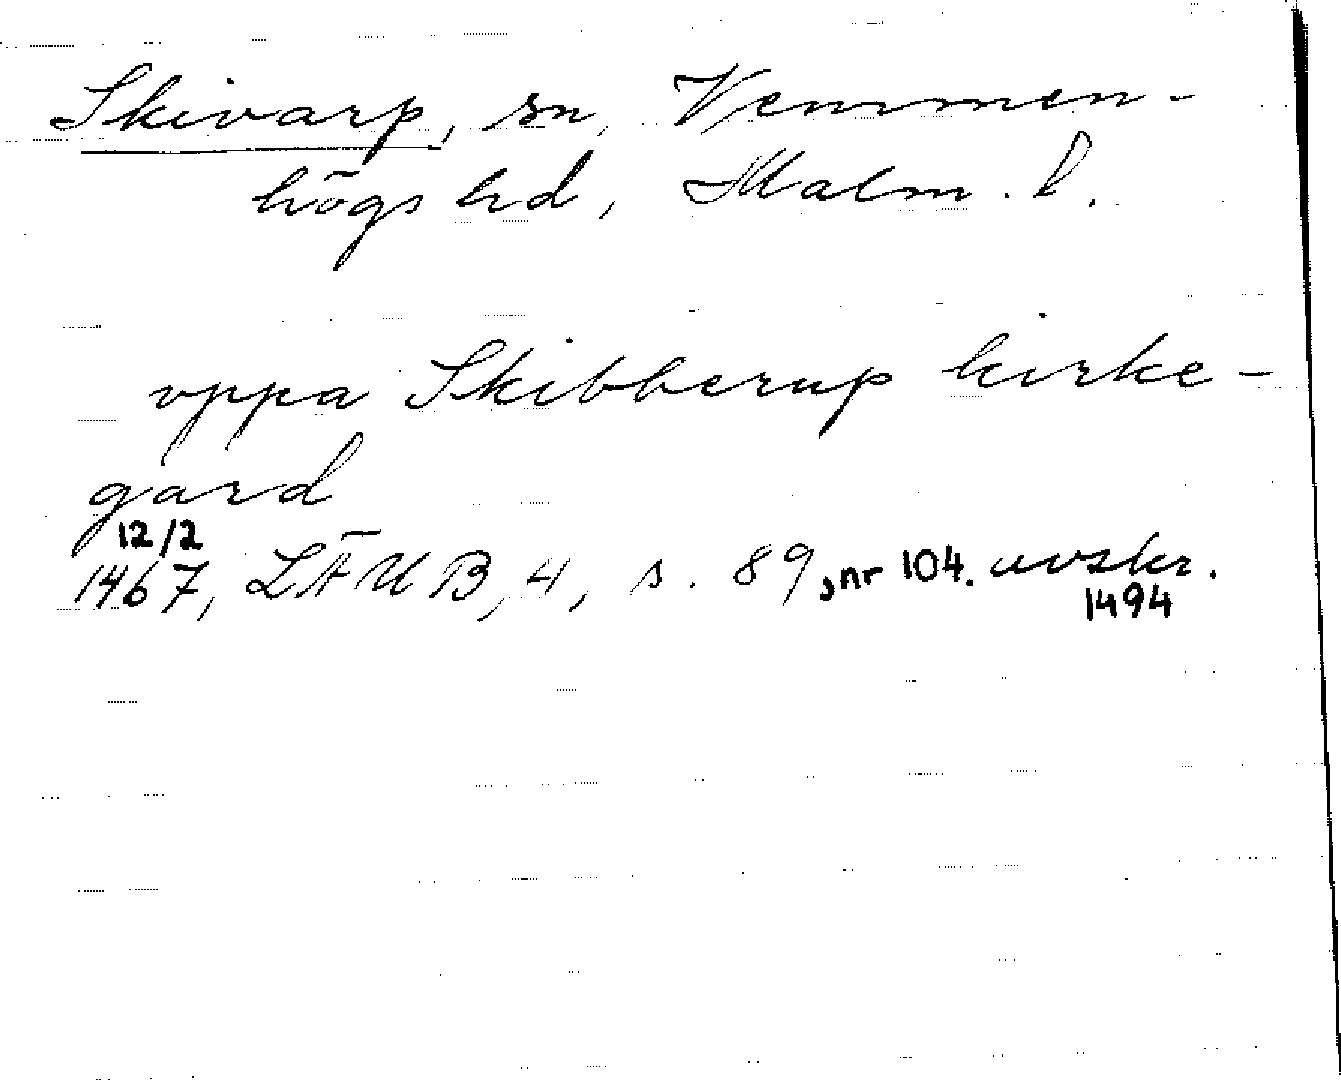 Skivarp, sn, Vemmen-
högs hd, Malm. l.
vppa Skibberup kirke-
gard
12/2
1467, LÄUB, 4, s. 89, nr 104. avskr.
1494